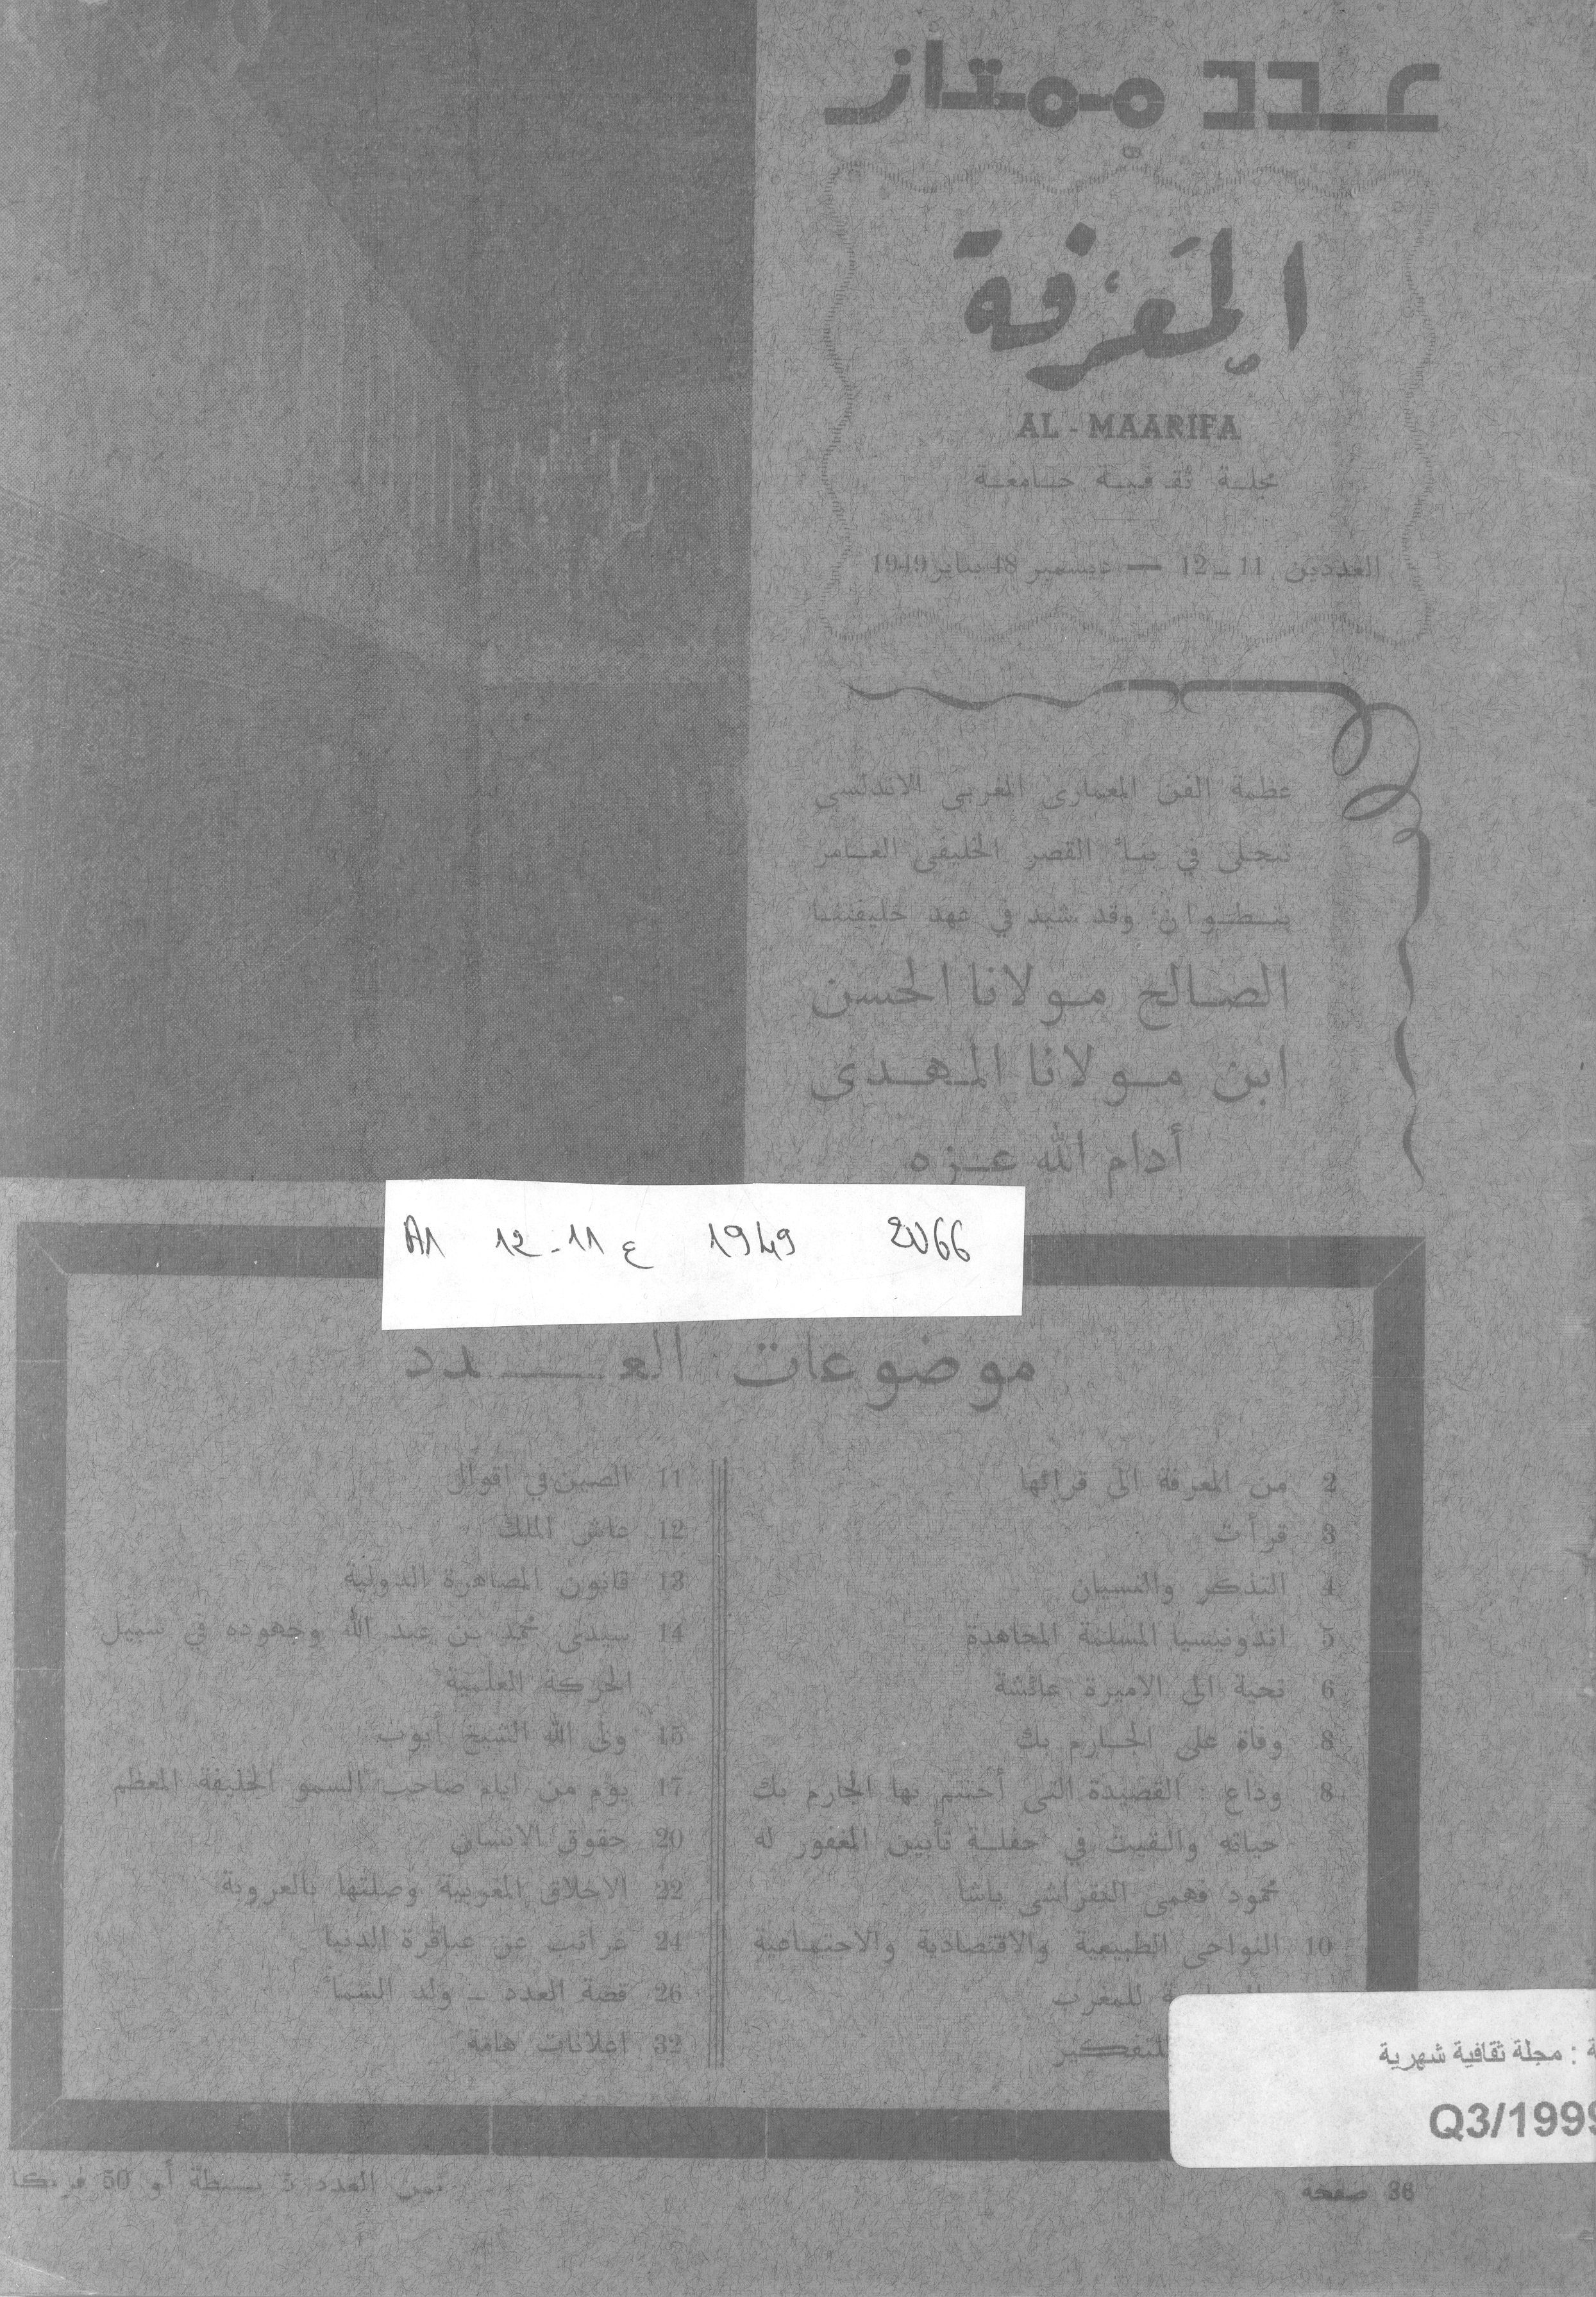 عدد ممتاز
المعرفة
AL - MAARIFA
مجلة ثقافية جامعة
العددين 11 - 12 — ديسمبر 48 يناير 1949
عظمة الفن المعمارى المغربى الاندلسى
تتجلى في بناء القصر الخليفى العامر
بتطوان وقد شيد في عهد خليفتنا
الصالح مولانا الحسن
ابن مولانا المهدى
أدام الله عزه
A1 12-11 ع 1949 2066
موضوعات العدد
2 من المعرفة الى قرائها
3 قرأت
4 التذكر والنسيان
5 اندونيسيا المسلمة المجاهدة
6 تحية الى الاميرة عائشة
8 وفاة على الجارم بك
8 وداع : القصيدة التى أختتم بها الجارم بك
حياته والقيت في حفلة تأبين المغفور له
محمود فهمى النقراشى باشا
10 النواحى الطبيعية والاقتصادية والاجتماعية
للمغرب
للتفكير
11 الصين في اقوال
12 عاش الملك
13 قانون المصاهرة الدولية
14 سيدى محمد بن عبد الله وجهوده في سبيل
الحركة العلمية
15 ولى الله الشيخ أيوب
17 يوم من ايام صاحب السمو الخليفة المعظم
20 حقوق الانسان
22 الاخلاق المغربية وصلتها بالعروبة
24 غرائب عن عباقرة الدنيا
26 قصة العدد - ولد السماء
32 اعلانات هامة
ة : مجلة ثقافية شهرية
Q3/1999
36 صفحة
ثمن العدد 5 بسيطة أو 50 فرنكا